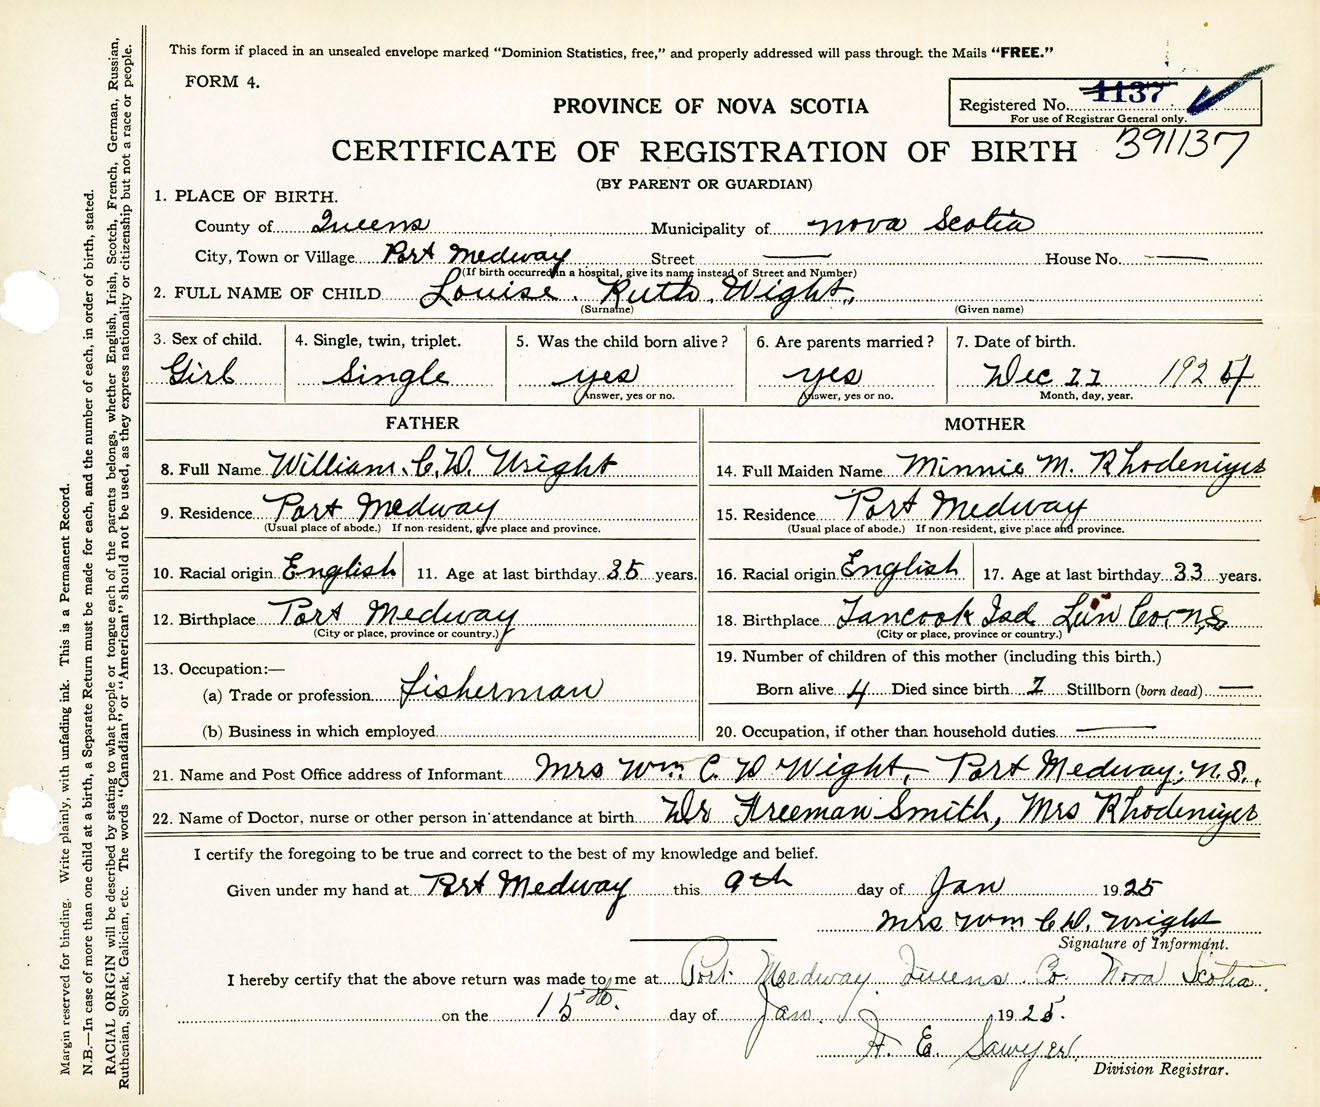 This form if placed in an unsealed envelope marked "Dominion Statistics, free," and properly addressed will pass through the Mails "FREE."
FORM 4.
PROVINCE OF NOVA SCOTIA
Registered No. 1137
For use of Registrar General only.
CERTIFICATE OF REGISTRATION OF BIRTH 391137
(BY PARENT OR GUARDIAN)
1. PLACE OF BIRTH.
County of Queens Municipality of Nova Scotia
City, Town or Village Port Medway Street — House No. —
(If birth occurred in a hospital, give its name instead of Street and Number)
2. FULL NAME OF CHILD Louise. Ruth. Wight.
(Surname) (Given name)
3. Sex of child. 4. Single, twin, triplet. 5. Was the child born alive? 6. Are parents married? 7. Date of birth.
Girl Single yes yes Dec 1924
Answer, yes or no. Answer, yes or no. Month, day, year.
FATHER MOTHER
8. Full Name William. C. D. Wright 14. Full Maiden Name Minnie M. Rhodeniyer
9. Residence Port Medway 15. Residence Port Medway
(Usual place of abode.) If non-resident, give place and province. (Usual place of abode.) If non-resident, give place and province.
10. Racial origin English 11. Age at last birthday 35 years. 16. Racial origin English 17. Age at last birthday 33 years.
12. Birthplace Port Medway 18. Birthplace Tancook Isd Lun Co, N.S.
(City or place, province or country.) (City or place, province or country.)
13. Occupation:— 19. Number of children of this mother (including this birth.)
(a) Trade or profession fisherman Born alive 4 Died since birth Stillborn (born dead) —
(b) Business in which employed 20. Occupation, if other than household duties —
21. Name and Post Office address of Informant Mrs Wm C D Wight, Port Medway, N.S.,
22. Name of Doctor, nurse or other person in attendance at birth Dr Freeman Smith, Mrs Rhodeniyer
I certify the foregoing to be true and correct to the best of my knowledge and belief.
Given under my hand at Port Medway this 9th day of Jan 1925
Mrs Wm C. D. Wright
Signature of Informant.
I hereby certify that the above return was made to me at Port Medway Queens Co. Nova Scotia.
on the 15th. day of Jan. 1925.
H. E. Sawyer.
Division Registrar.
Margin reserved for binding. Write plainly, with unfading ink. This is a Permanent Record.
N.B.—In case of more than one child at a birth, a Separate Return must be made for each, and the number of each, in order of birth, stated.
RACIAL ORIGIN will be described by stating to what people or tongue each of the parents belongs, whether English, Irish, Scotch, French, German, Russian,
Ruthenian, Slovak, Galician, etc. The words "Canadian" or "American" should not be used, as they express nationality or citizenship but not a race or people.